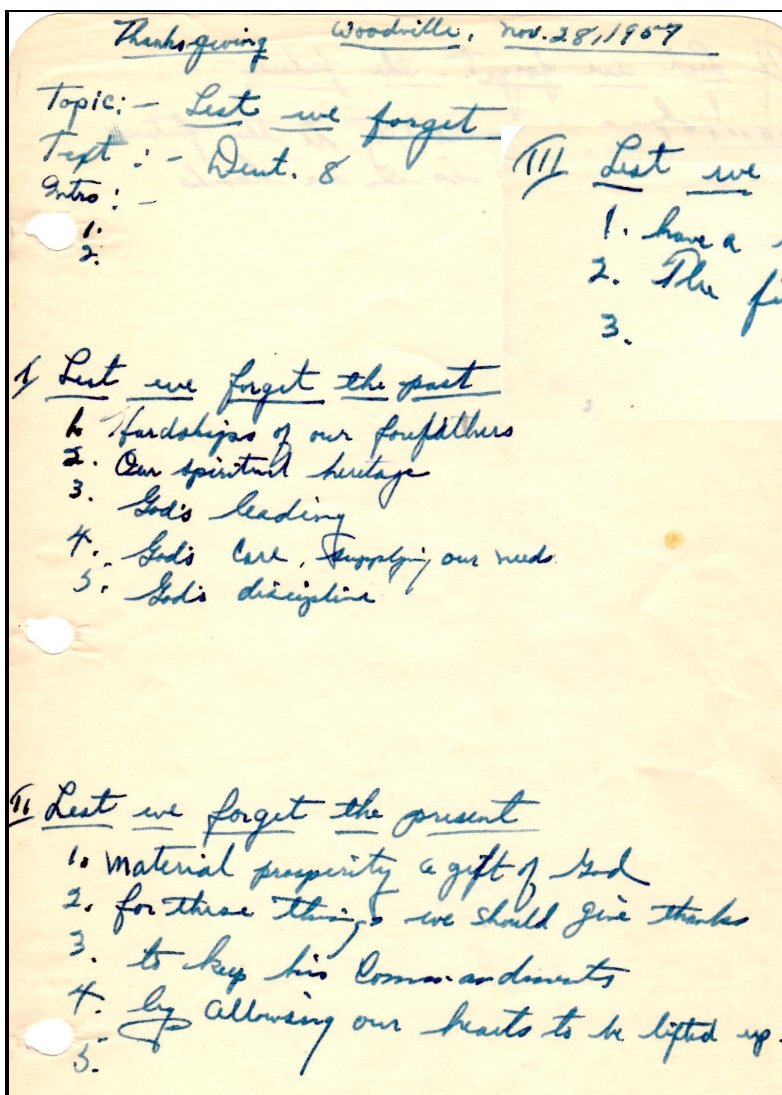 Thanksgiving Woodville, Nov. 28, 1957
Topic:- Lest we forget
Text:- Deut. 8
Intro:-
1.
2.
III Lest we
1. have a
2. The
3.
I Lest we forget the past
1. Hardships of our forefathers
2. Our spiritual heritage
3. God's leading
4. God's care, supplying our needs
5. God's discipline
II Lest we forget the present
1. Material prosperity a gift of God
2. for these things we should give thanks
3. to keep his Commandments
4. by allowing our hearts to be lifted up.
5.